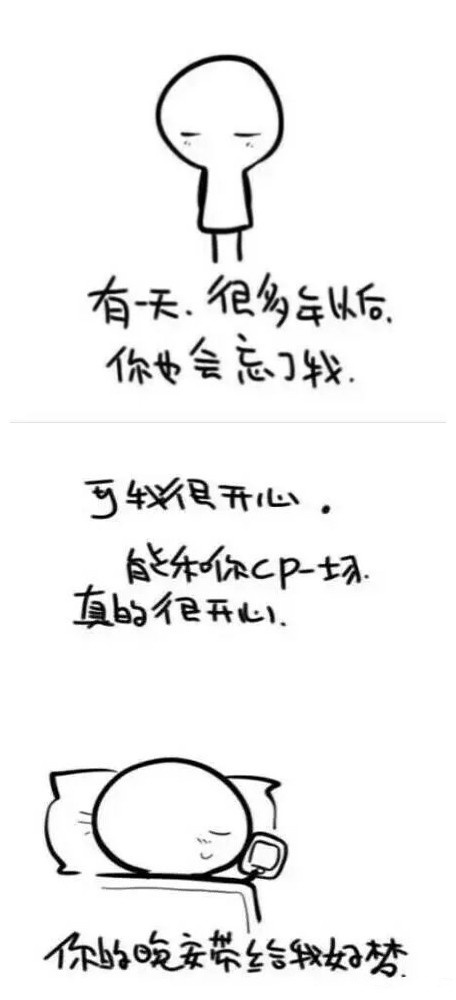 有一天.很多年以后.
你也会忘了我.
可我很开心.
能和你CP一场.
真的很开心.
你的晚安带给我好梦.